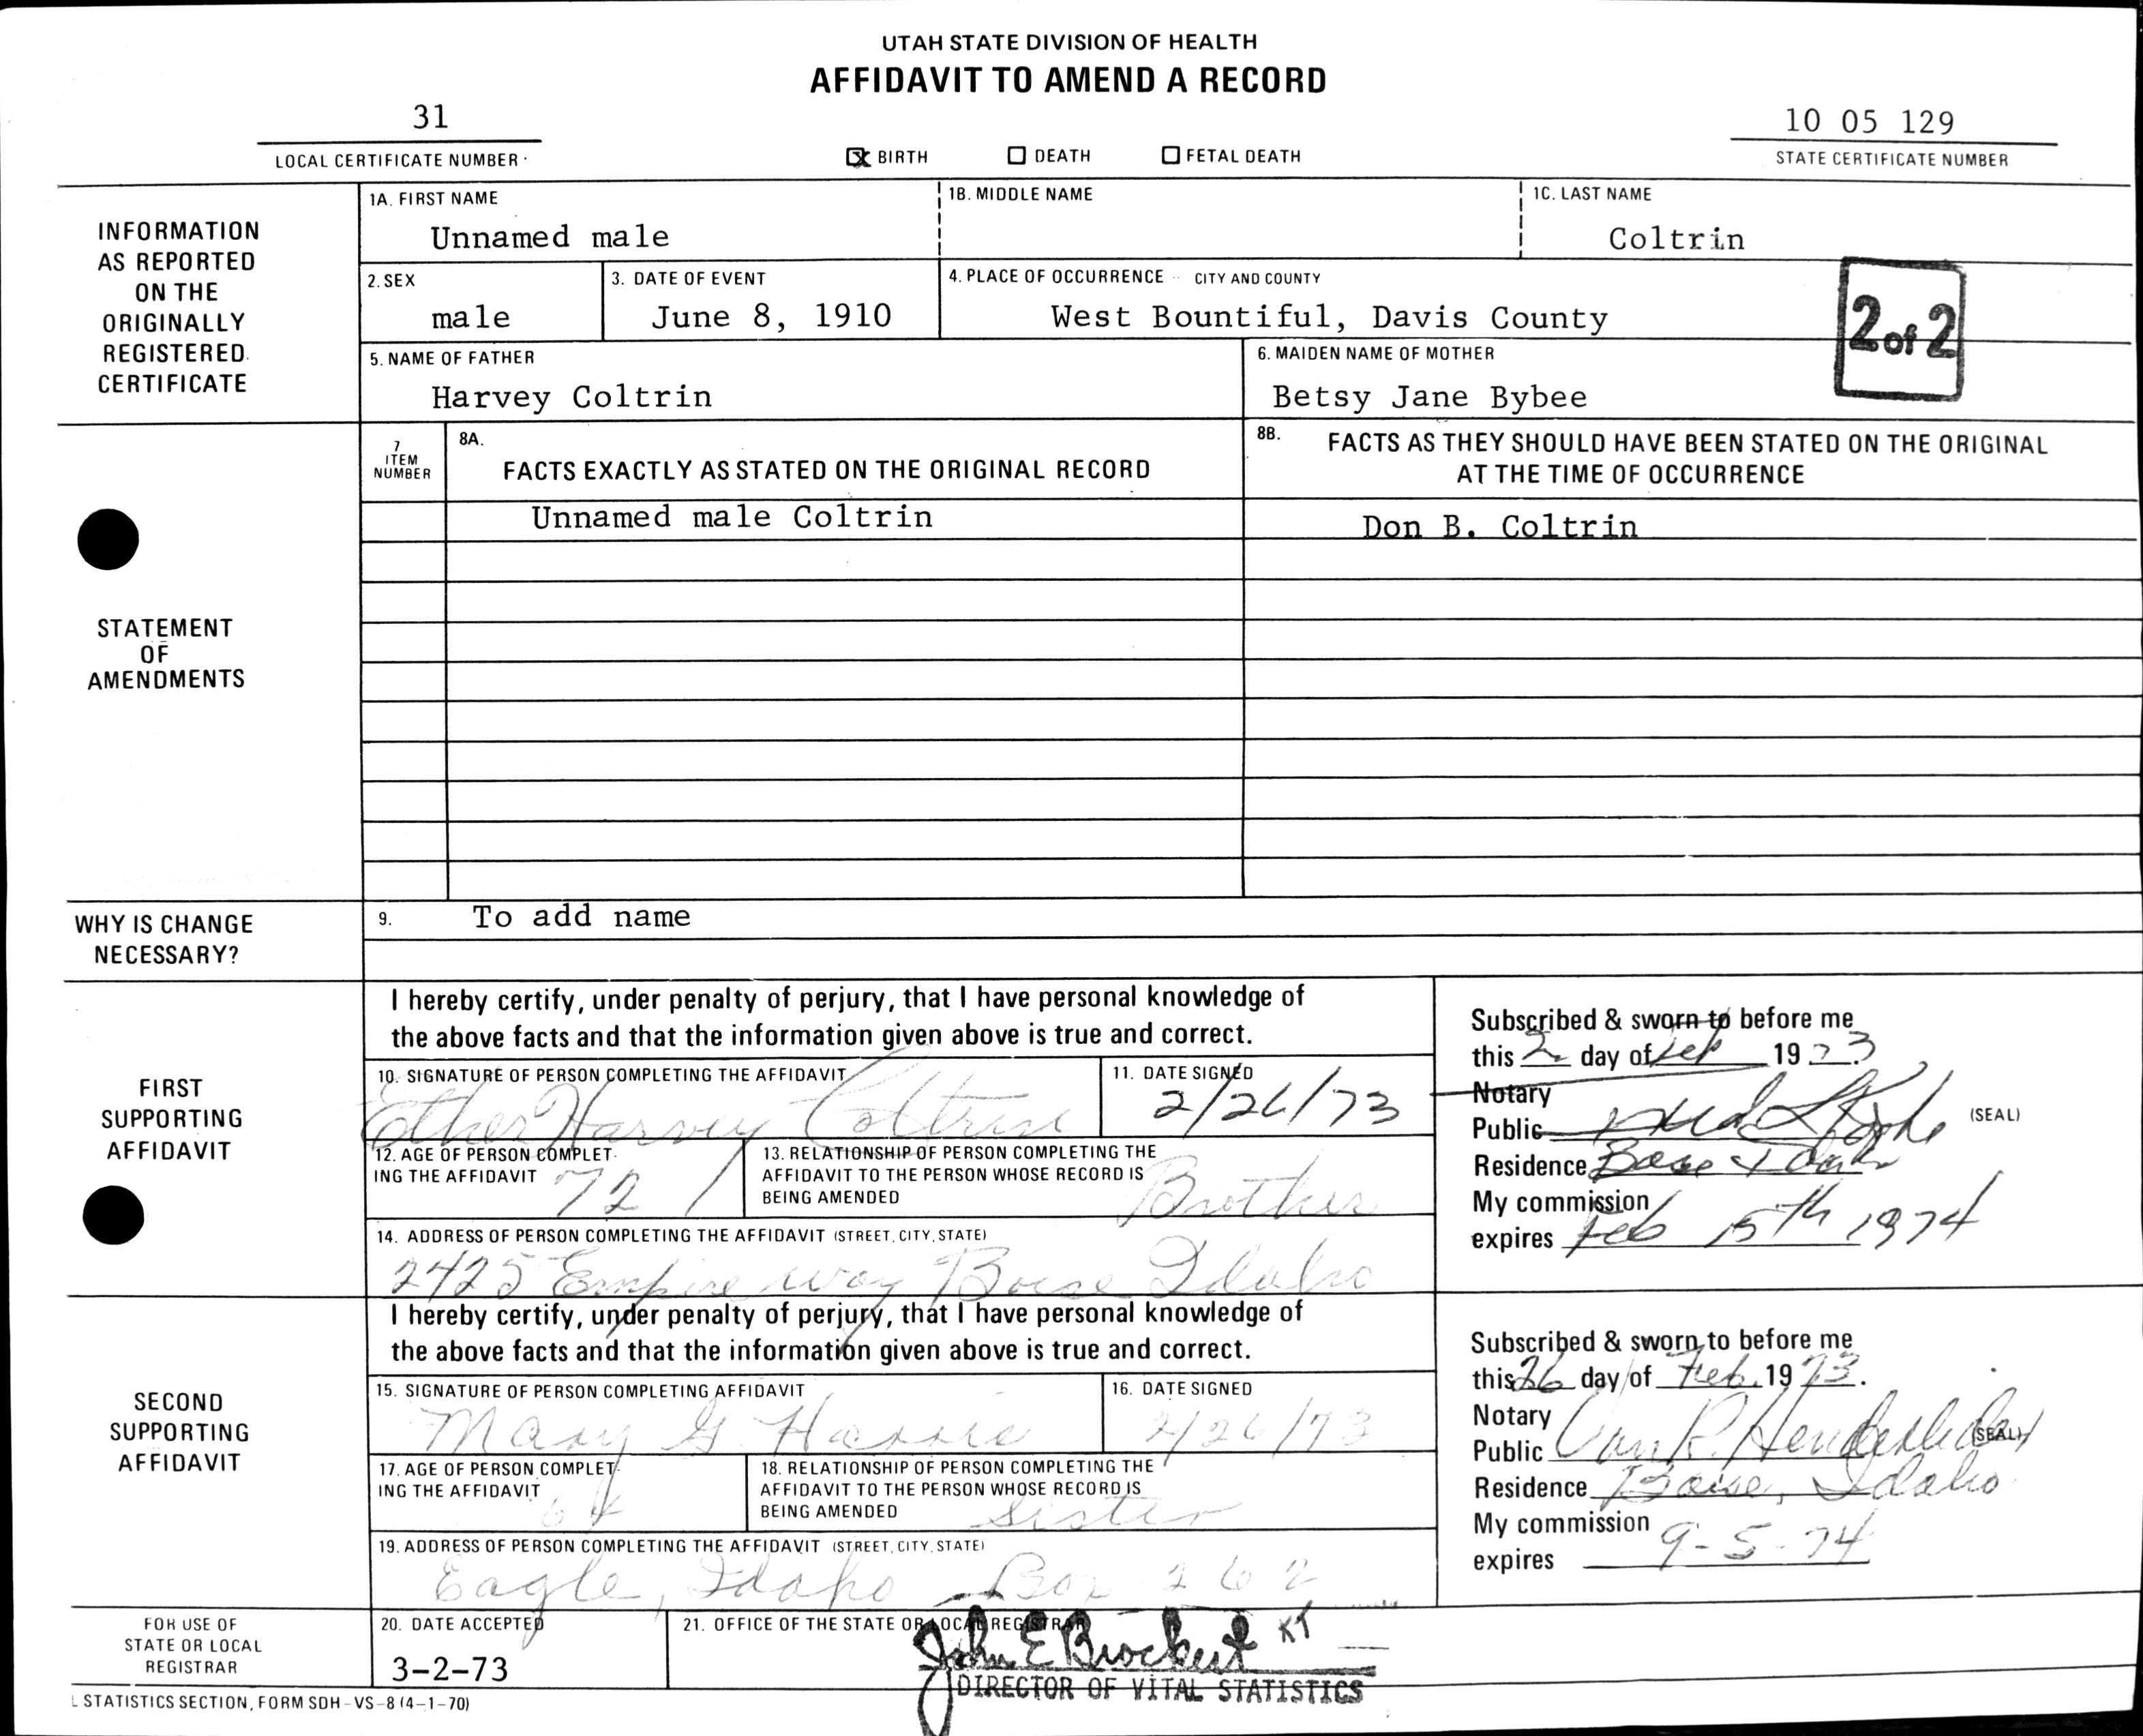 UTAH STATE DIVISION OF HEALTH
AFFIDAVIT TO AMEND A RECORD
31
10 05 129
LOCAL CERTIFICATE NUMBER
X BIRTH DEATH FETAL DEATH
STATE CERTIFICATE NUMBER
INFORMATION
AS REPORTED
ON THE
ORIGINALLY
REGISTERED
CERTIFICATE
1A. FIRST NAME
Unnamed male
1B. MIDDLE NAME
1C. LAST NAME
Coltrin
2. SEX
male
3. DATE OF EVENT
June 8, 1910
4. PLACE OF OCCURRENCE -- CITY AND COUNTY
West Bountiful, Davis County
2 of 2
5. NAME OF FATHER
Harvey Coltrin
6. MAIDEN NAME OF MOTHER
Betsy Jane Bybee
STATEMENT
OF
AMENDMENTS
7
ITEM
NUMBER
8A.
FACTS EXACTLY AS STATED ON THE ORIGINAL RECORD
8B. FACTS AS THEY SHOULD HAVE BEEN STATED ON THE ORIGINAL
AT THE TIME OF OCCURRENCE
Unnamed male Coltrin
Don B. Coltrin
WHY IS CHANGE
NECESSARY?
9. To add name
FIRST
SUPPORTING
AFFIDAVIT
I hereby certify, under penalty of perjury, that I have personal knowledge of
the above facts and that the information given above is true and correct.
10. SIGNATURE OF PERSON COMPLETING THE AFFIDAVIT
Ether Harvey Coltrin
11. DATE SIGNED
2/26/73
12. AGE OF PERSON COMPLET-
ING THE AFFIDAVIT 72
13. RELATIONSHIP OF PERSON COMPLETING THE
AFFIDAVIT TO THE PERSON WHOSE RECORD IS
BEING AMENDED Brother
14. ADDRESS OF PERSON COMPLETING THE AFFIDAVIT (STREET, CITY, STATE)
2425 Empire way Boise Idaho
Subscribed & sworn to before me
this 2 day of 1973
Notary
Public (SEAL)
Residence Boise Idaho
My commission
expires Feb 15th 1974
SECOND
SUPPORTING
AFFIDAVIT
I hereby certify, under penalty of perjury, that I have personal knowledge of
the above facts and that the information given above is true and correct.
15. SIGNATURE OF PERSON COMPLETING AFFIDAVIT
Mary G. Harris
16. DATE SIGNED
2/26/73
17. AGE OF PERSON COMPLET-
ING THE AFFIDAVIT
64
18. RELATIONSHIP OF PERSON COMPLETING THE
AFFIDAVIT TO THE PERSON WHOSE RECORD IS
BEING AMENDED Sister
19. ADDRESS OF PERSON COMPLETING THE AFFIDAVIT (STREET, CITY, STATE)
Eagle, Idaho Box 262
Subscribed & sworn to before me
this 26 day of Feb. 1973.
Notary
Public (SEAL)
Residence Boise, Idaho
My commission
expires 9-5-74
FOR USE OF
STATE OR LOCAL
REGISTRAR
20. DATE ACCEPTED
3-2-73
21. OFFICE OF THE STATE OR LOCAL REGISTRAR
John E Brockert KT
DIRECTOR OF VITAL STATISTICS
L STATISTICS SECTION, FORM SDH-VS-8 (4-1-70)